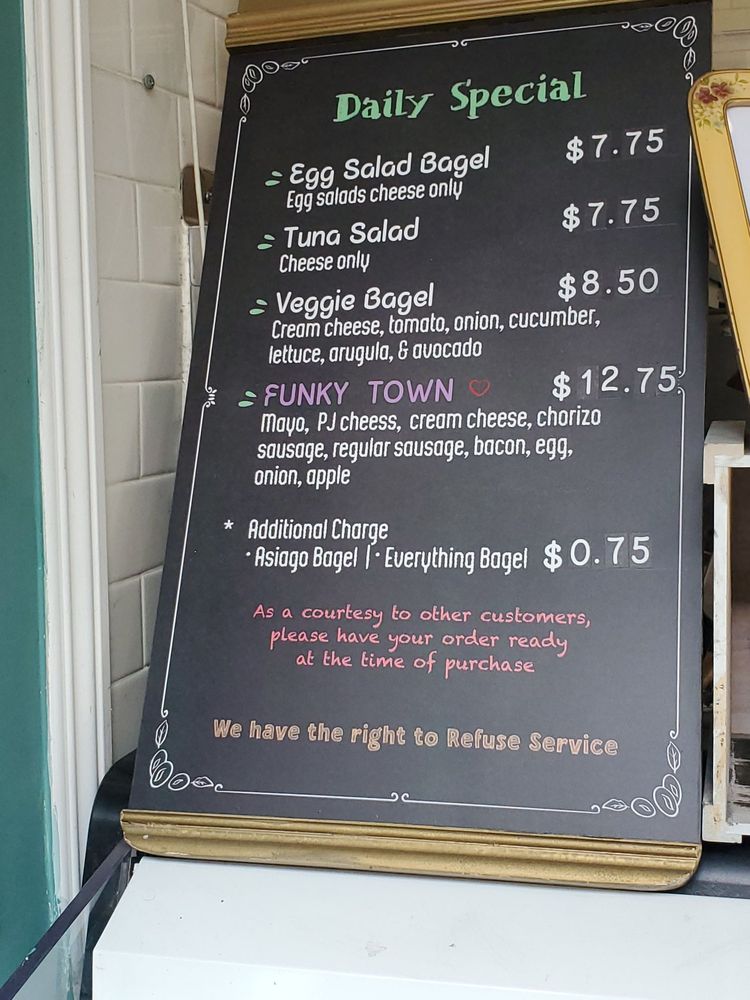 Daily Special
Egg Salad Bagel $7.75
Egg salads cheese only
Tuna Salad $7.75
Cheese only
Veggie Bagel $8.50
Cream cheese, tomato, onion, cucumber,
lettuce, arugula, & avocado
FUNKY TOWN $12.75
Mayo, PJ cheess, cream cheese, chorizo
sausage, regular sausage, bacon, egg,
onion, apple
* Additional Charge
· Asiago Bagel | · Everything Bagel $0.75
As a courtesy to other customers,
please have your order ready
at the time of purchase
We have the right to Refuse Service